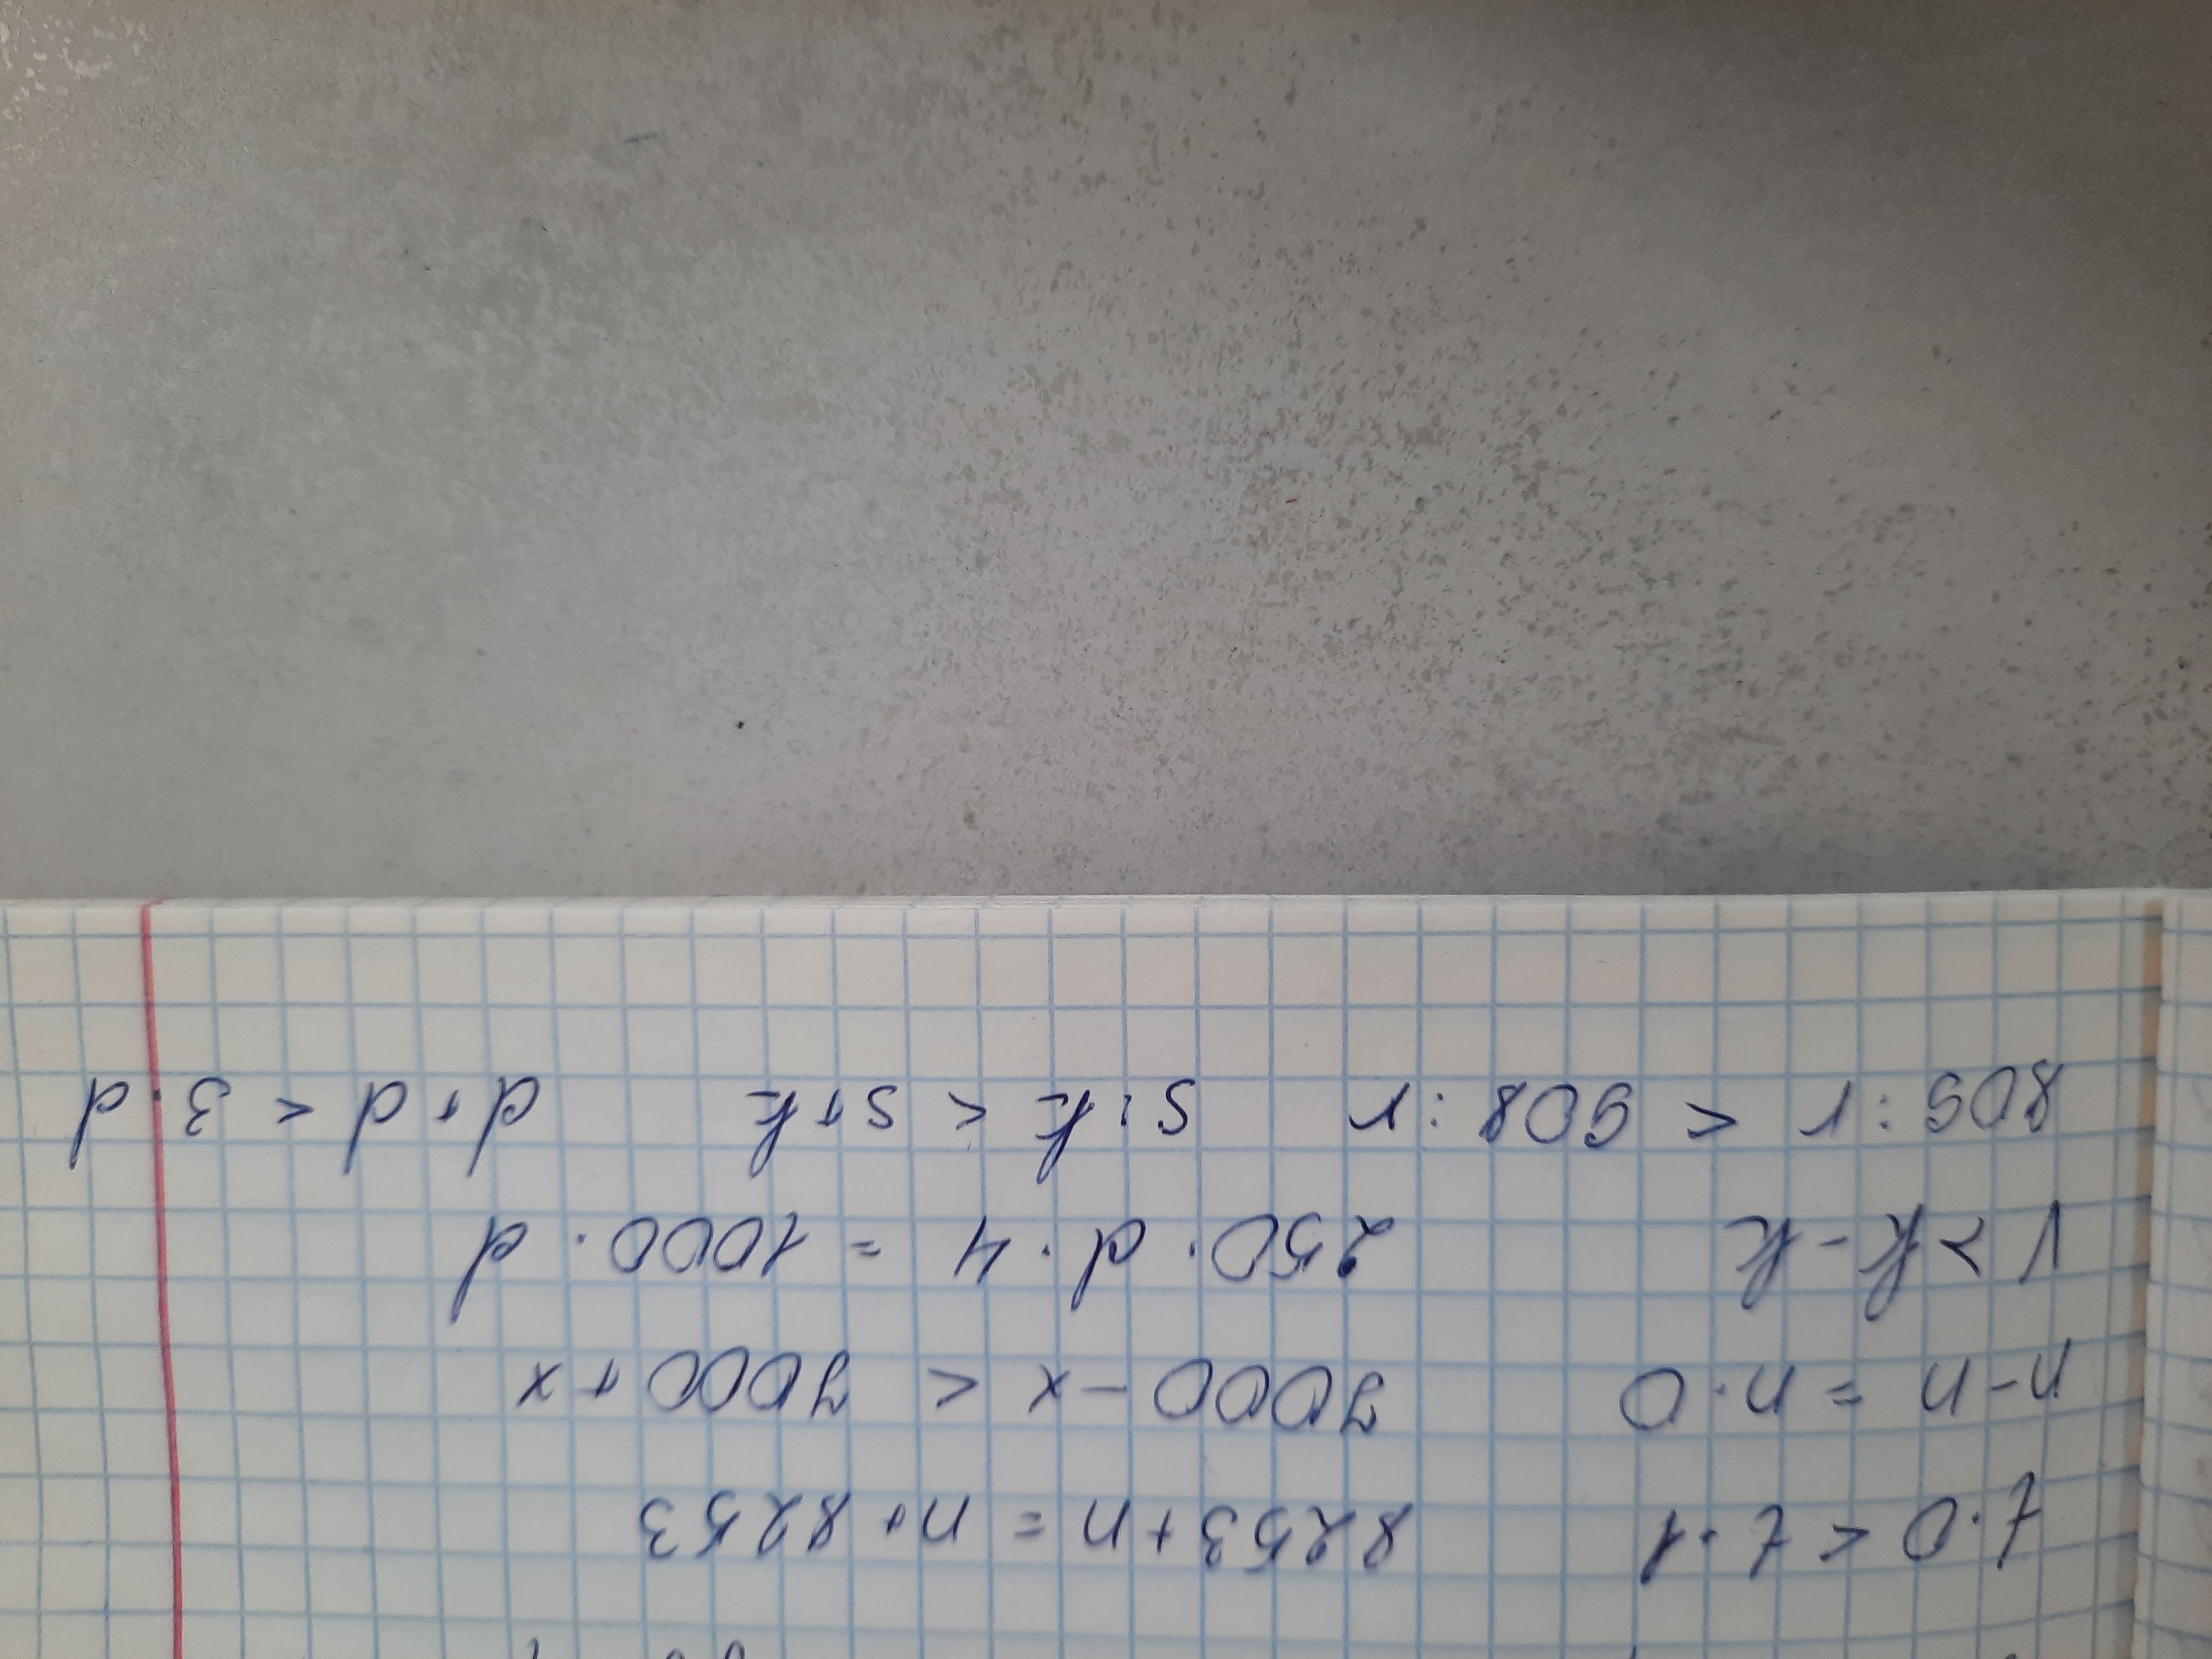 t·0 < t·1 8253+n = n+8253
n-n = n·0 7000-x < 7000+x
1 > k-k 250·d·4 = 1000·d
809:r < 908:r s:k < s+k d+d < 3·d